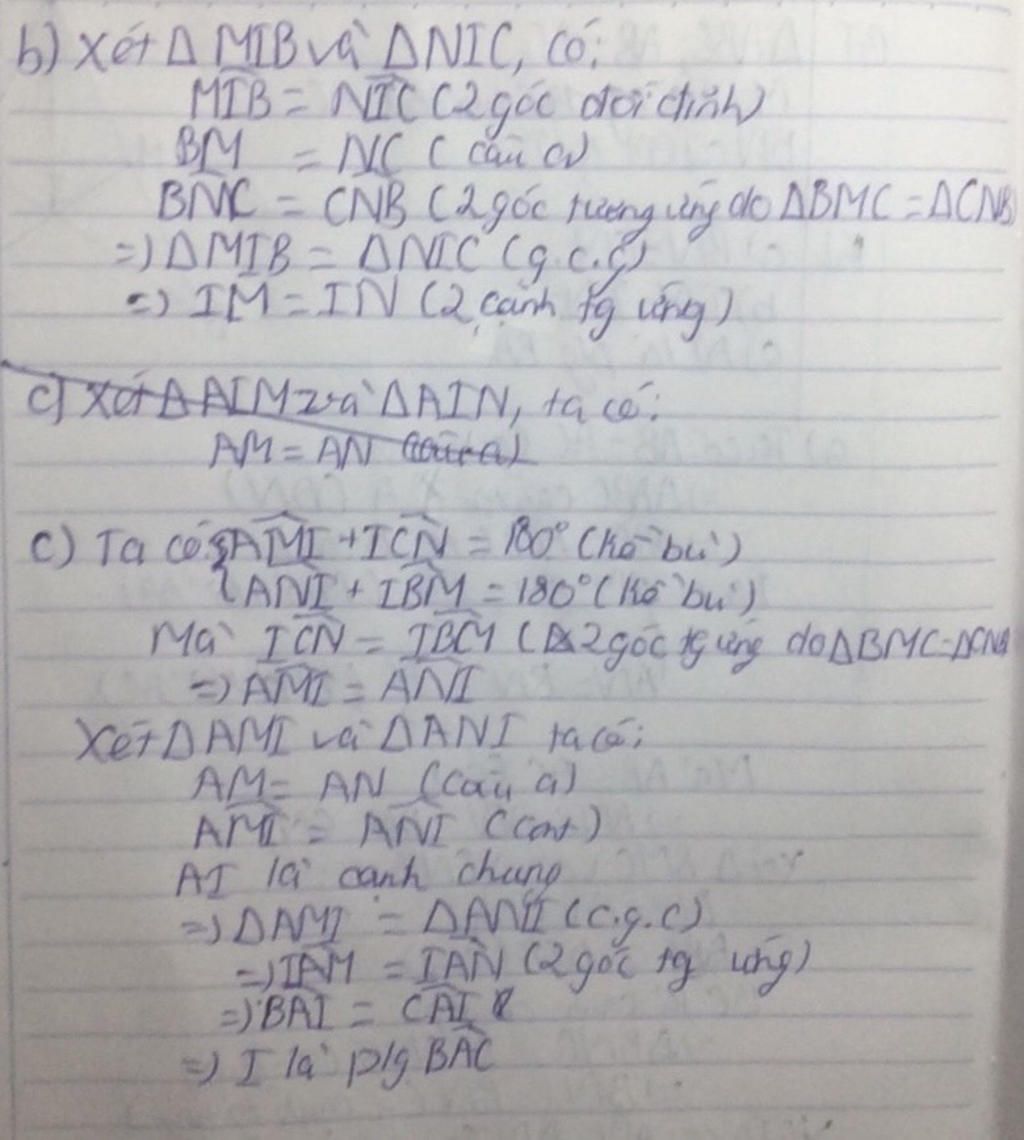 b) Xét Δ MIB và ΔNIC, có:
MIB = NIC (2 góc đối đỉnh)
BM = NC (câu a)
BNC = CNB (2 góc tương ứng do ΔBMC = ΔCNB)
=) ΔMIB = ΔNIC (g.c.g)
=) IM = IN (2 cạnh tg ứng)
c) Xét Δ AIM và ΔAIN, ta có:
AM = AN (câu a)
c) Ta có { AMI + ICN = 180° (kề bù)
{ ANI + IBM = 180° (kề bù)
Mà ICN = IBM (2 góc tg ứng do ΔBMC = ΔCNB
=) AMI = ANI
Xét Δ AMI và Δ ANI ta có:
AM = AN (câu a)
AMI = ANI (cmt)
AI là cạnh chung
=) Δ AMI = Δ ANI (c.g.c)
=) IAM = IAN (2 góc tg ứng)
=) BAI = CAI
=) I là p/g BAC